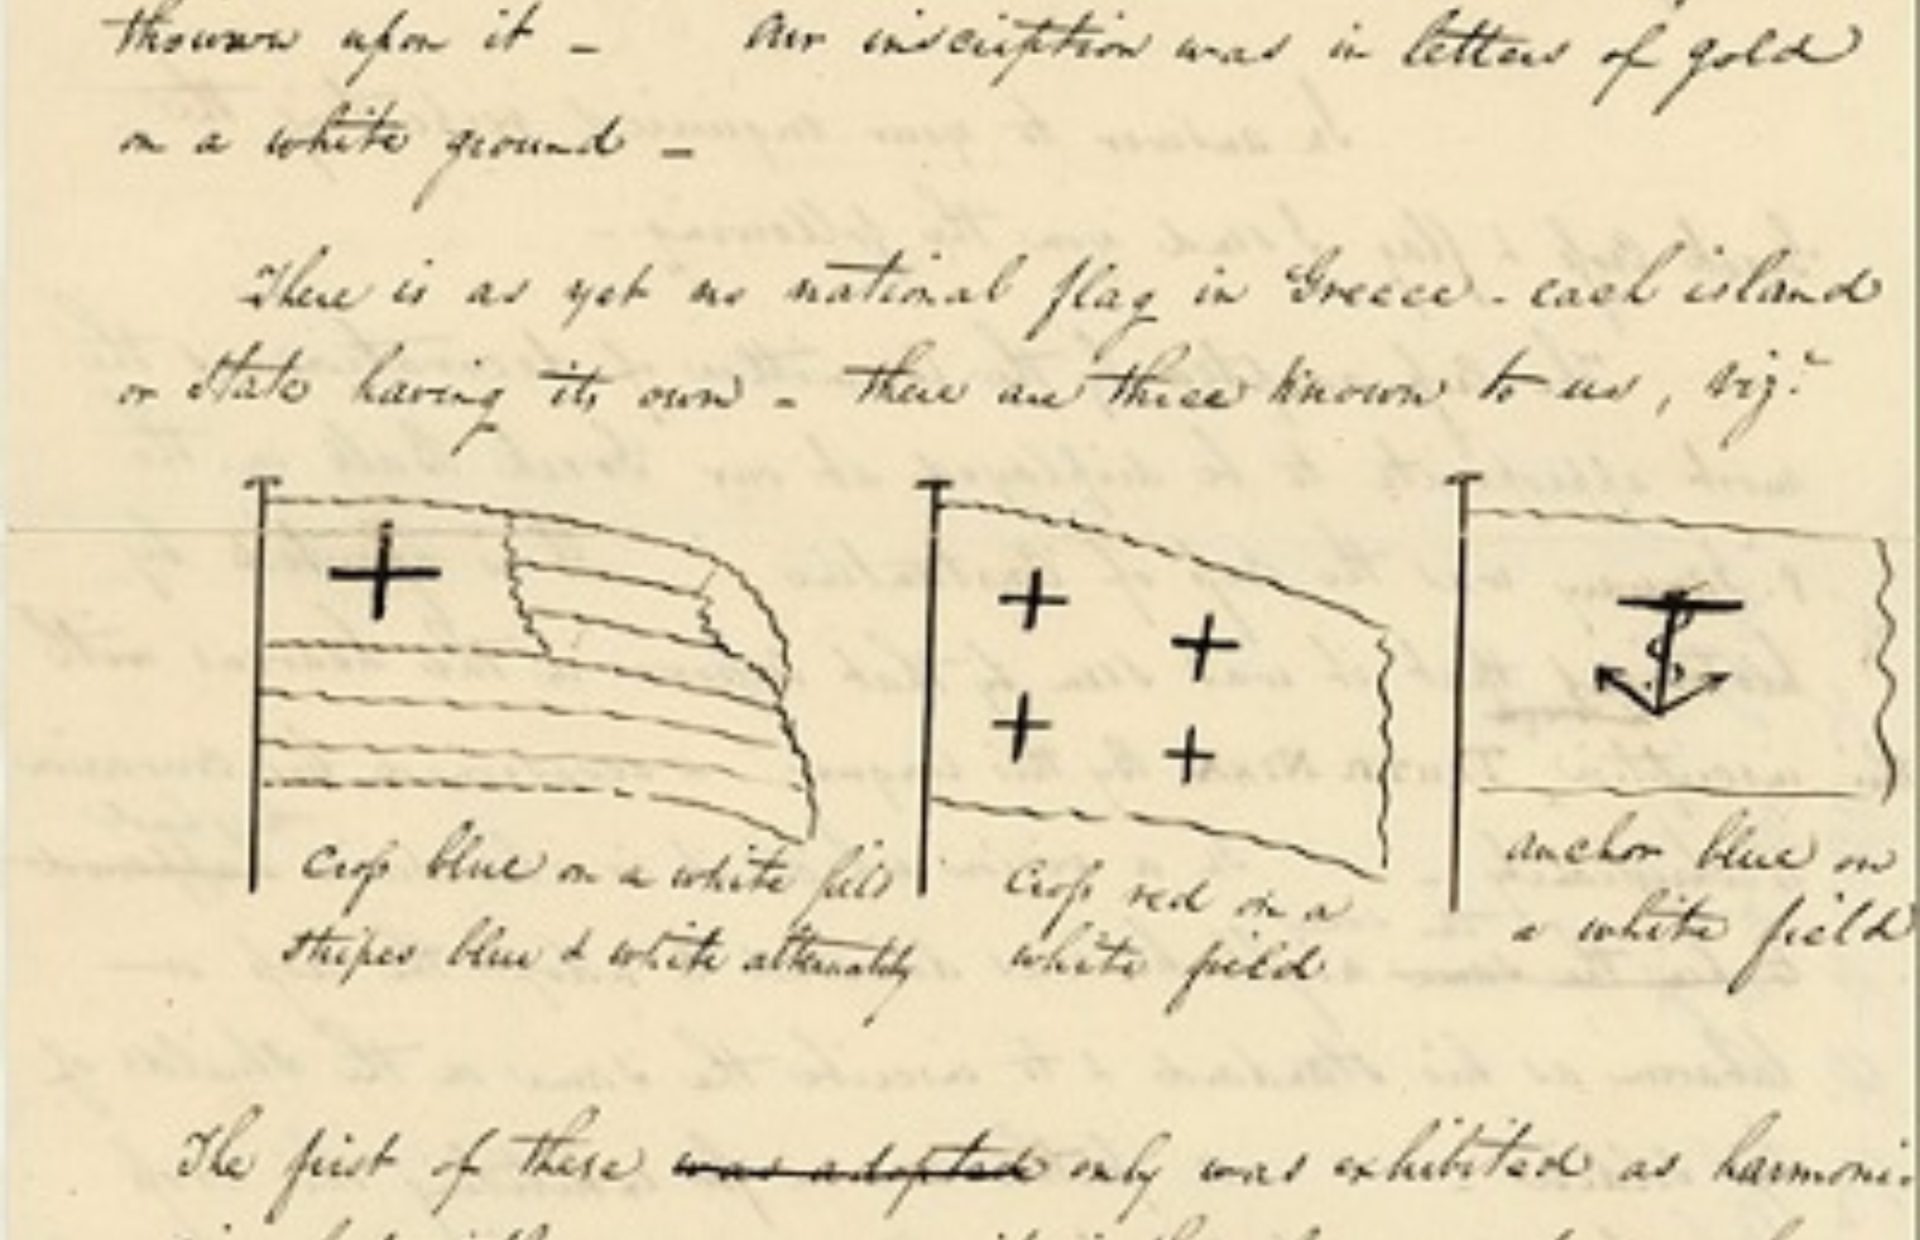 thrown upon it – Our inscription was in letters of gold
on a white ground –
There is as yet no national flag in Greece - each island
or State having its own - there are three known to us, viz.
Cross blue on a white
stripes blue & white alternately
Cross red on a
white field
anchor blue on
a white field
The first of these was adopted only was exhibited as harmoni-